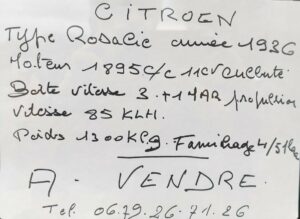 CITROEN
Type Rosalie année 1936
Moteur 1895 C/c 11CV culbuté
Boite vitesse 3 + 1 MAR propulsion
Vitesse 85 KLH.
Poids 1300 KLG. Familiage 4/5
A. VENDRE.
Tel. 06.79.26.71.26